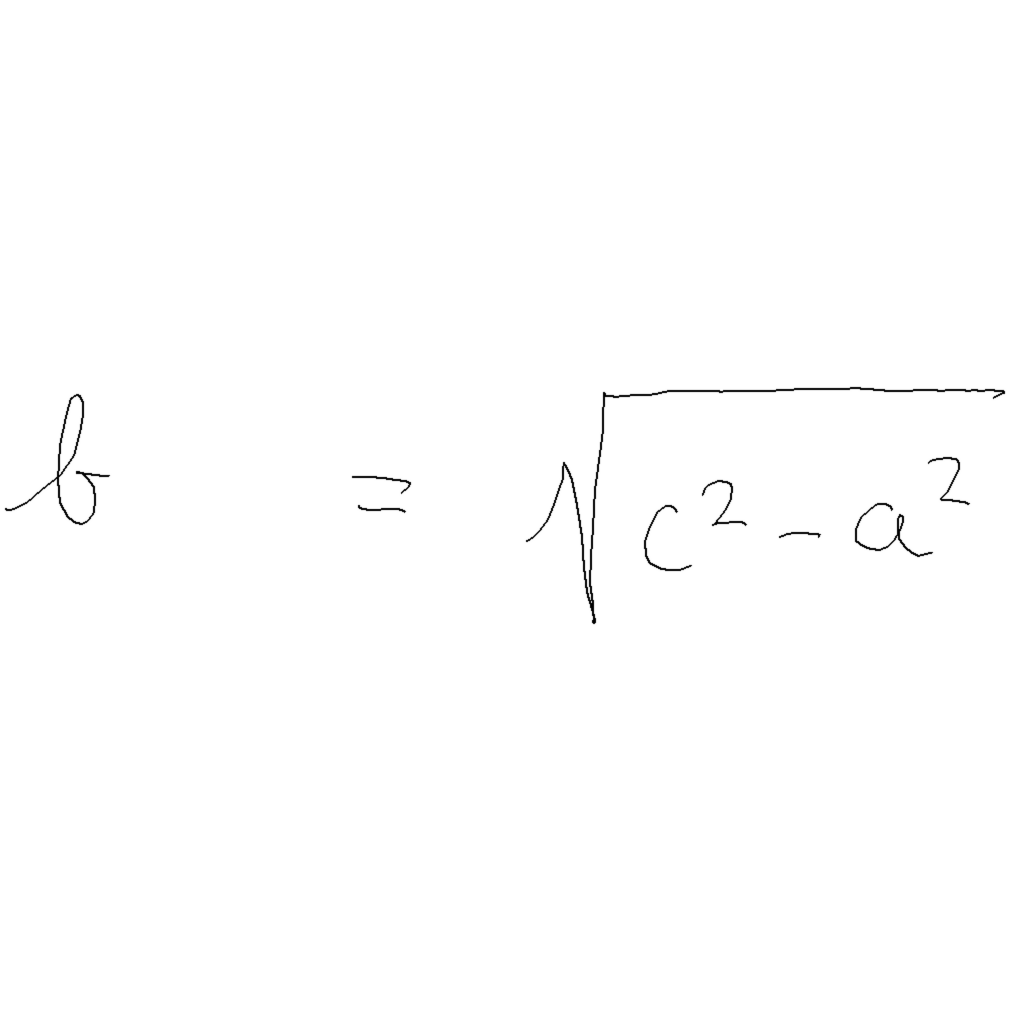 b = √(c² - a²)